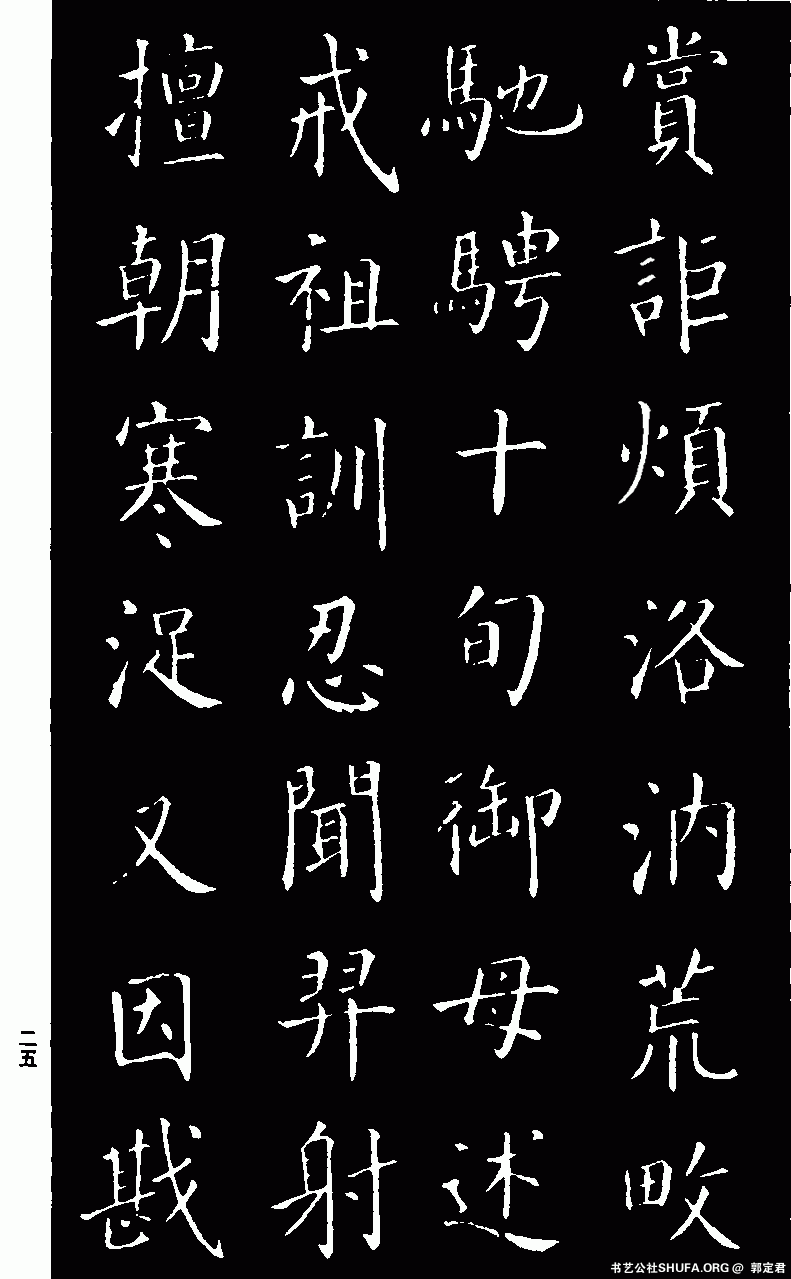 賞詎煩洛汭荒畋
馳騁十旬御母述
戒祖訓忍聞羿射
擅朝寒浞又因戡
二五
书艺公社SHUFA.ORG @ 郭定君